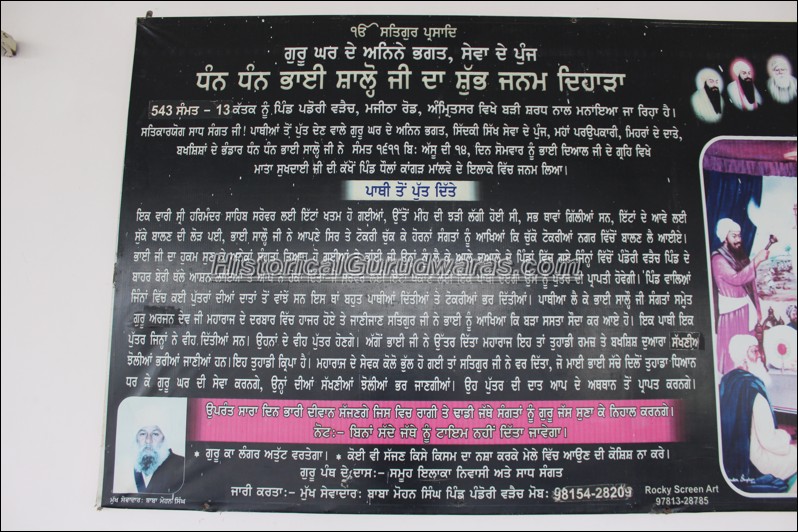 ੴ ਸਤਿਗੁਰ ਪ੍ਰਸਾਦਿ
ਗੁਰੂ ਘਰ ਦੇ ਅਨਿਨੇ ਭਗਤ, ਸੇਵਾ ਦੇ ਪੁੰਜ
ਧੰਨ ਧੰਨ ਭਾਈ ਸਾਲ੍ਹੋ ਜੀ ਦਾ ਸ਼ੁੱਭ ਜਨਮ ਦਿਹਾੜਾ
543 ਸੰਮਤ – 13 ਕੱਤਕ ਨੂੰ ਪਿੰਡ ਪਡੋਰੀ ਵੜੈਚ, ਮਜੀਠਾ ਰੋਡ, ਅੰਮ੍ਰਿਤਸਰ ਵਿਖੇ ਬੜੀ ਸ਼ਰਧ ਨਾਲ ਮਨਾਇਆ ਜਾ ਰਿਹਾ ਹੈ।
ਸਤਿਕਾਰਯੋਗ ਸਾਧ ਸੰਗਤ ਜੀ! ਪਾਥੀਆਂ ਤੋਂ ਪੁੱਤ ਦੇਣ ਵਾਲੇ ਗੁਰੂ ਘਰ ਦੇ ਅਨਿਨ ਭਗਤ, ਸਿੱਦਕੀ ਸਿੱਖ ਸੇਵਾ ਦੇ ਪੁੰਜ, ਮਹਾਂ ਪਰਉਪਕਾਰੀ, ਮਿਹਰਾਂ ਦੇ ਦਾਤੇ,
ਬਖਸ਼ਿਸ਼ਾਂ ਦੇ ਭੰਡਾਰ ਧੰਨ ਧੰਨ ਭਾਈ ਸਾਲ੍ਹੋ ਜੀ ਨੇ ਸੰਮਤ ੧੬੧੧ ਬਿ: ਅੱਸੂ ਦੀ ੧੪, ਦਿਨ ਸੋਮਵਾਰ ਨੂੰ ਭਾਈ ਦਿਆਲ ਜੀ ਦੇ ਗ੍ਰਹਿ ਵਿਖੇ
ਮਾਤਾ ਸੁਖਦਾਈ ਜ਼ੀ ਦੀ ਕੱਖੋਂ ਪਿੰਡ ਧੌਲਾਂ ਕਾਂਗੜ ਮਾਲਵੇ ਦੇ ਇਲਾਕੇ ਵਿੱਚ ਜਨਮ ਲਿਆ।
ਪਾਥੀ ਤੋਂ ਪੁੱਤ ਦਿੱਤੇ
ਇਕ ਵਾਰੀ ਸ੍ਰੀ ਹਰਿਮੰਦਰ ਸਾਹਿਬ ਸਰੋਵਰ ਲਈ ਇੱਟਾਂ ਖਤਮ ਹੋ ਗਈਆਂ, ਉੱਤੋਂ ਮੀਹ ਦੀ ਝੜੀ ਲੱਗੀ ਹੋਈ ਸੀ, ਸਭ ਥਾਵਾਂ ਗਿੱਲੀਆਂ ਸਨ, ਇੱਟਾਂ ਦੇ ਆਵੇ ਲਈ
ਸੁੱਕੇ ਬਾਲਣ ਦੀ ਲੋੜ ਪਈ, ਭਾਈ ਸਾਲ੍ਹੋ ਜੀ ਨੇ ਆਪਣੇ ਸਿਰ ਤੇ ਟੋਕਰੀ ਚੁੱਕ ਕੇ ਹੋਰਨਾਂ ਸੰਗਤਾਂ ਨੂੰ ਆਖਿਆਂ ਕਿ ਚੁੱਕੋ ਟੋਕਰੀਆਂ ਨਗਰ ਵਿੱਚੋਂ ਬਾਲਣ ਲੈ ਆਈਏ।
ਭਾਈ ਜੀ ਦਾ ਹੁਕਮ ਸੁਣ ਸੰਗਤਾਂ ਤਿਆਰ ਹੋ ਗਈਆਂ ਭਾਈ ਜੀ ਉਨਾਂ ਨੂੰ ਲੈ ਕੇ ਆਲੇ ਦੁਆਲੇ ਦੇ ਪਿੰਡਾਂ ਵਿੱਚ ਗਏ ਜਿੰਨਾਂ ਵਿੱਚੋਂ ਪੰਡੋਰੀ ਵੜੈਚ ਪਿੰਡ ਦੇ
HistoricalGurudwaras.com
ਬਾਹਰ ਬੇਰੀ ਥੱਲੇ ਆਸ਼ਨ ਪੁੱਤਰ ਦੀ ਪ੍ਰਾਪਤੀ ਹੋਵੇਗੀ। ਪਿੰਡ ਵਾਲਿਆਂ
ਜਿੰਨਾਂ ਵਿੱਚ ਕਈ ਪੁੱਤਰਾਂ ਦੀਆਂ ਦਾਤਾਂ ਤੋਂ ਵਾਂਝੇ ਸਨ ਇਸ ਥਾਂ ਬਹੁਤ ਪਾਥੀਆਂ ਦਿੱਤੀਆਂ ਤੇ ਟੋਕਰੀਆਂ ਭਰ ਦਿੱਤੀਆਂ। ਪਾਥੀਆ ਲੈ ਕੇ ਭਾਈ ਸਾਲ੍ਹੋ ਜੀ ਸੰਗਤਾਂ ਸਮੇਤ
ਗੁਰੂ ਅਰਜਨ ਦੇਵ ਜੀ ਮਹਾਰਾਜ ਦੇ ਦਰਬਾਰ ਵਿੱਚ ਹਾਜਰ ਹੋਏ ਤੇ ਜਾਣੀਜਾਣ ਸਤਿਗੁਰ ਜੀ ਨੇ ਭਾਈ ਨੂੰ ਆਖਿਆ ਕਿ ਬੜਾ ਸਸਤਾ ਸੌਦਾ ਕਰ ਆਏ ਹੋ। ਇਕ ਪਾਥੀ ਇਕ
ਪੁੱਤਰ ਜਿਨ੍ਹਾਂ ਨੇ ਵੀਹ ਦਿੱਤੀਆਂ ਸਨ। ਉਹਨਾਂ ਦੇ ਵੀਹ ਪੁੱਤਰ ਹੋਣਗੇ। ਅੱਗੋਂ ਭਾਈ ਜੀ ਨੇ ਉੱਤਰ ਦਿੱਤਾ ਮਹਾਰਾਜ ਇਹ ਤਾਂ ਤੁਹਾਡੀ ਰਮਜ਼ ਤੇ ਬਖਸ਼ਿਸ਼ ਦੁਆਰਾ ਸੱਖਣੀਅ
ਝੋਲੀਆਂ ਭਰੀਆਂ ਜਾਣੀਆਂ ਹਨ।ਇਹ ਤੁਹਾਡੀ ਕ੍ਰਿਪਾ ਹੈ। ਮਹਾਰਾਜ ਦੇ ਸੇਵਕ ਕੋਲੋ ਭੁੱਲ ਹੋ ਗਈ ਤਾਂ ਸਤਿਗੁਰ ਜੀ ਨੇ ਵਰ ਦਿੱਤਾ, ਜੋ ਮਾਈ ਭਾਈ ਸੱਚੇ ਦਿਲੋਂ ਤੁਹਾਡਾ ਧਿਆਨ
ਧਰ ਕੇ ਗੁਰੂ ਘਰ ਦੀ ਸੇਵਾ ਕਰਨਗੇ, ਉਨ੍ਹਾਂ ਦੀਆਂ ਸੱਖਣੀਆਂ ਝੋਲੀਆਂ ਭਰ ਜਾਣਗੀਆਂ। ਉਹ ਪੁੱਤਰ ਦੀ ਦਾਤ ਆਪ ਦੇ ਅਥਬਾਨ ਤੋਂ ਪ੍ਰਾਪਤ ਕਰਨਗੇ।
ਉਪਰੰਤ ਸਾਰਾ ਦਿਨ ਭਾਰੀ ਦੀਵਾਨ ਸੱਜਣਗੇ ਜਿਸ ਵਿਚ ਰਾਗੀ ਤੇ ਢਾਡੀ ਜੱਥੇ ਸੰਗਤਾਂ ਨੂੰ ਗੁਰੂ ਜੱਸ ਸੁਣਾ ਕੇ ਨਿਹਾਲ ਕਰਨਗੇ।
ਨੋਟ:– ਬਿਨਾਂ ਸੱਦੇ ਜੱਥੇ ਨੂੰ ਟਾਇਮ ਨਹੀਂ ਦਿੱਤਾ ਜਾਵੇਗਾ।
* ਗੁਰੂ ਕਾ ਲੰਗਰ ਅਤੁੱਟ ਵਰਤੇਗਾ। * ਕੋਈ ਵੀ ਸੱਜਣ ਕਿਸੇ ਕਿਸਮ ਦਾ ਨਸ਼ਾ ਕਰਕੇ ਮੇਲੇ ਵਿੱਚ ਆਉਣ ਦੀ ਕੋਸ਼ਿਸ਼ ਨਾ ਕਰੇ।
ਗੁਰੂ ਪੰਥ ਦੇ ਦਾਸ:– ਸਮੂਹ ਇਲਾਕਾ ਨਿਵਾਸੀ ਅਤੇ ਸਾਧ ਸੰਗਤ
ਜਾਰੀ ਕਰਤਾ:– ਮੁੱਖ ਸੇਵਾਦਾਰ: ਬਾਬਾ ਮੋਹਨ ਸਿੰਘ ਪਿੰਡ ਪੰਡੋਰੀ ਵੜੈਚ ਮੋਬ: 98154-28209
ਮੁੱਖ ਸੇਵਾਦਾਰ: ਬਾਬਾ ਮੋਹਨ ਸਿੰਘ
Rocky Screen Art
97813-28785